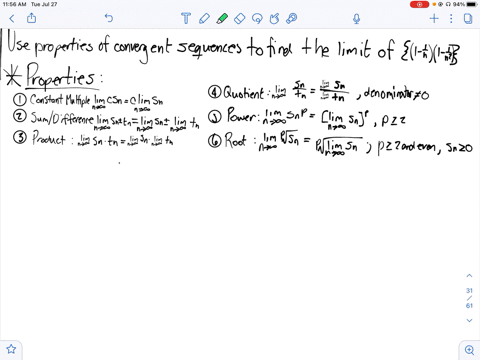 11:56 AM Tue Jul 27
94%
Use properties of convergent sequences to find the limit of {(1-1/n)(1-
* Properties:
① Constant Multiple lim n→∞ CSn = C lim n→∞ Sn
② Sum/Difference lim n→∞ Sn ± tn = lim n→∞ Sn ± lim n→∞ tn
③ Product: lim n→∞ Sn · tn = lim n→∞ Sn · lim n→∞ tn
④ Quotient: lim n→∞ Sn/tn = lim n→∞ Sn / lim n→∞ tn, denominator≠0
⑤ Power: lim n→∞ Sn^p = [lim n→∞ Sn]^p, p≥2
⑥ Root: lim n→∞ ᵖ√Sn = ᵖ√lim n→∞ Sn; p≥2 and even, Sn≥0
31
/
61